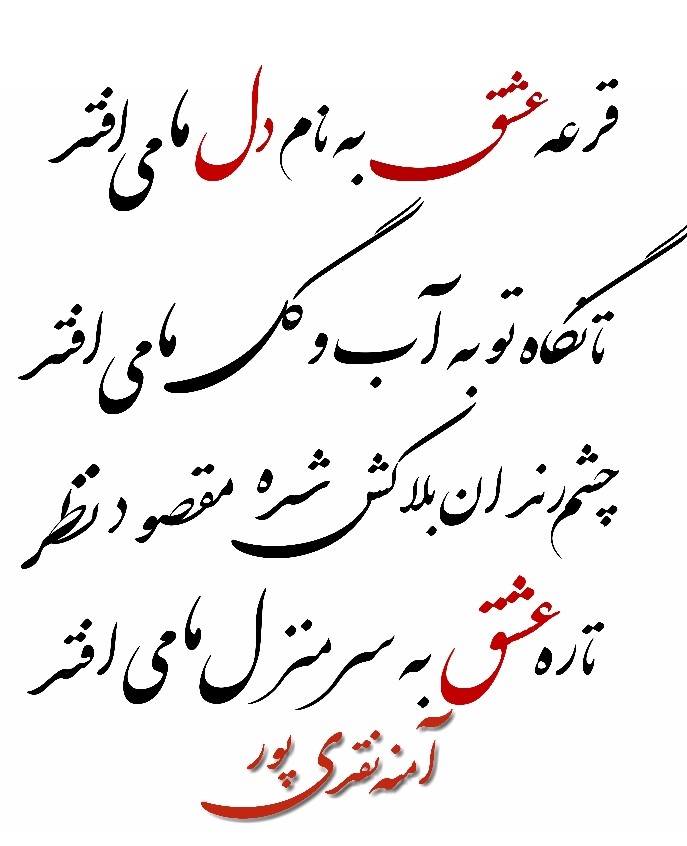 قرعه عشق به نام دل ما می افتد
تا نگاه تو به آب و گل ما می افتد
چشم رندان بلاکش شده مقصود نظر
تا ره عشق به سر منزل ما می افتد
آمنه نقدی پور